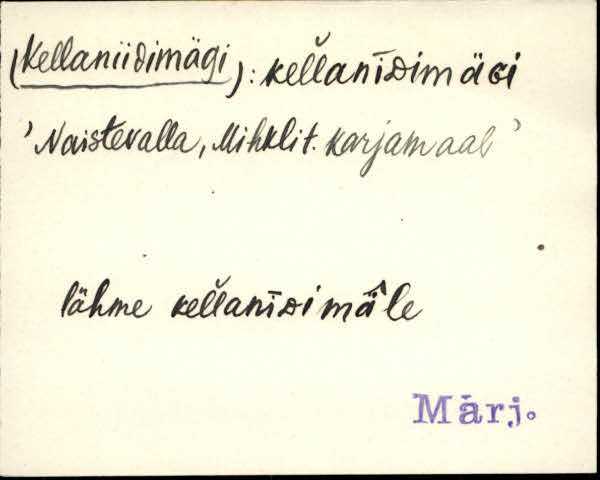 (Kellaniidimägi): kel̆lanīᴅimäɢi
'Naistevalla, Mihklit. karjamaal'
lähme kel̆lanīᴅimä̂le
Märj.